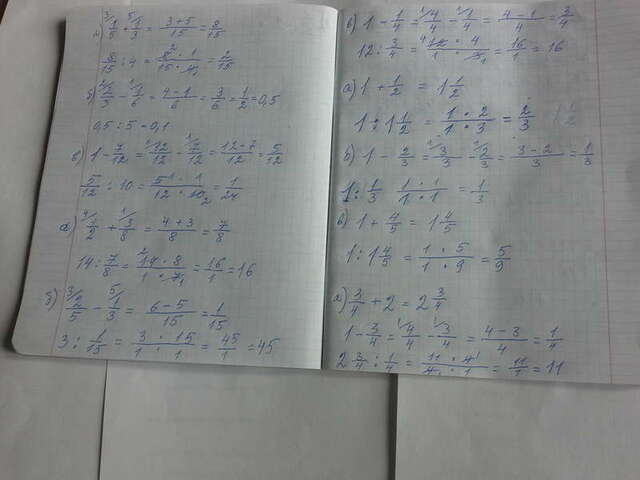 а) 3/ 1/5 + 5/ 1/3 = (3+5)/15 = 8/15
8/15 : 4 = (8 · 1)/(15 · 4) = 2/15
б) 2/ 2/3 - 1/ 1/6 = (4-1)/6 = 3/6 = 1/2 = 0,5
0,5 : 5 - 0,1
в) 1 - 7/12 = 1/ 12/12 - 1/ 7/12 = (12-7)/12 = 5/12
5/12 : 10 = (5 · 1)/(12 · 10) = 1/24
а) 4/ 1/2 + 1/ 3/8 = (4+3)/8 = 7/8
14 : 7/8 = (14 · 8)/(1 · 7) = 16/1 = 16
б) 3/ 2/5 - 5/ 1/3 = (6-5)/15 = 1/15
3 : 1/15 = (3 · 15)/(1 · 1) = 45/1 = 45
в) 1 - 1/4 = 1/ 4/4 - 1/ 1/4 = (4-1)/4 = 3/4
12 : 3/4 = (12 · 4)/(1 · 3) = 16/1 = 16
а) 1 + 1/2 = 1 1/2
1 : 1 1/2 = (1 · 2)/(1 · 3) = 2/3
б) 1 - 2/3 = 1/ 3/3 - 1/ 2/3 = (3-2)/3 = 1/3
1 : 1/3 (1 · 1)/(1 · 1) = 1/3
в) 1 + 4/5 = 1 4/5
1 : 1 4/5 = (1 · 5)/(1 · 9) = 5/9
а) 3/4 + 2 = 2 3/4
1 - 3/4 = 1/ 4/4 - 1/ 3/4 = (4-3)/4 = 1/4
2 3/4 : 1/4 = (11 · 4)/(4 · 1) = 11/1 = 11